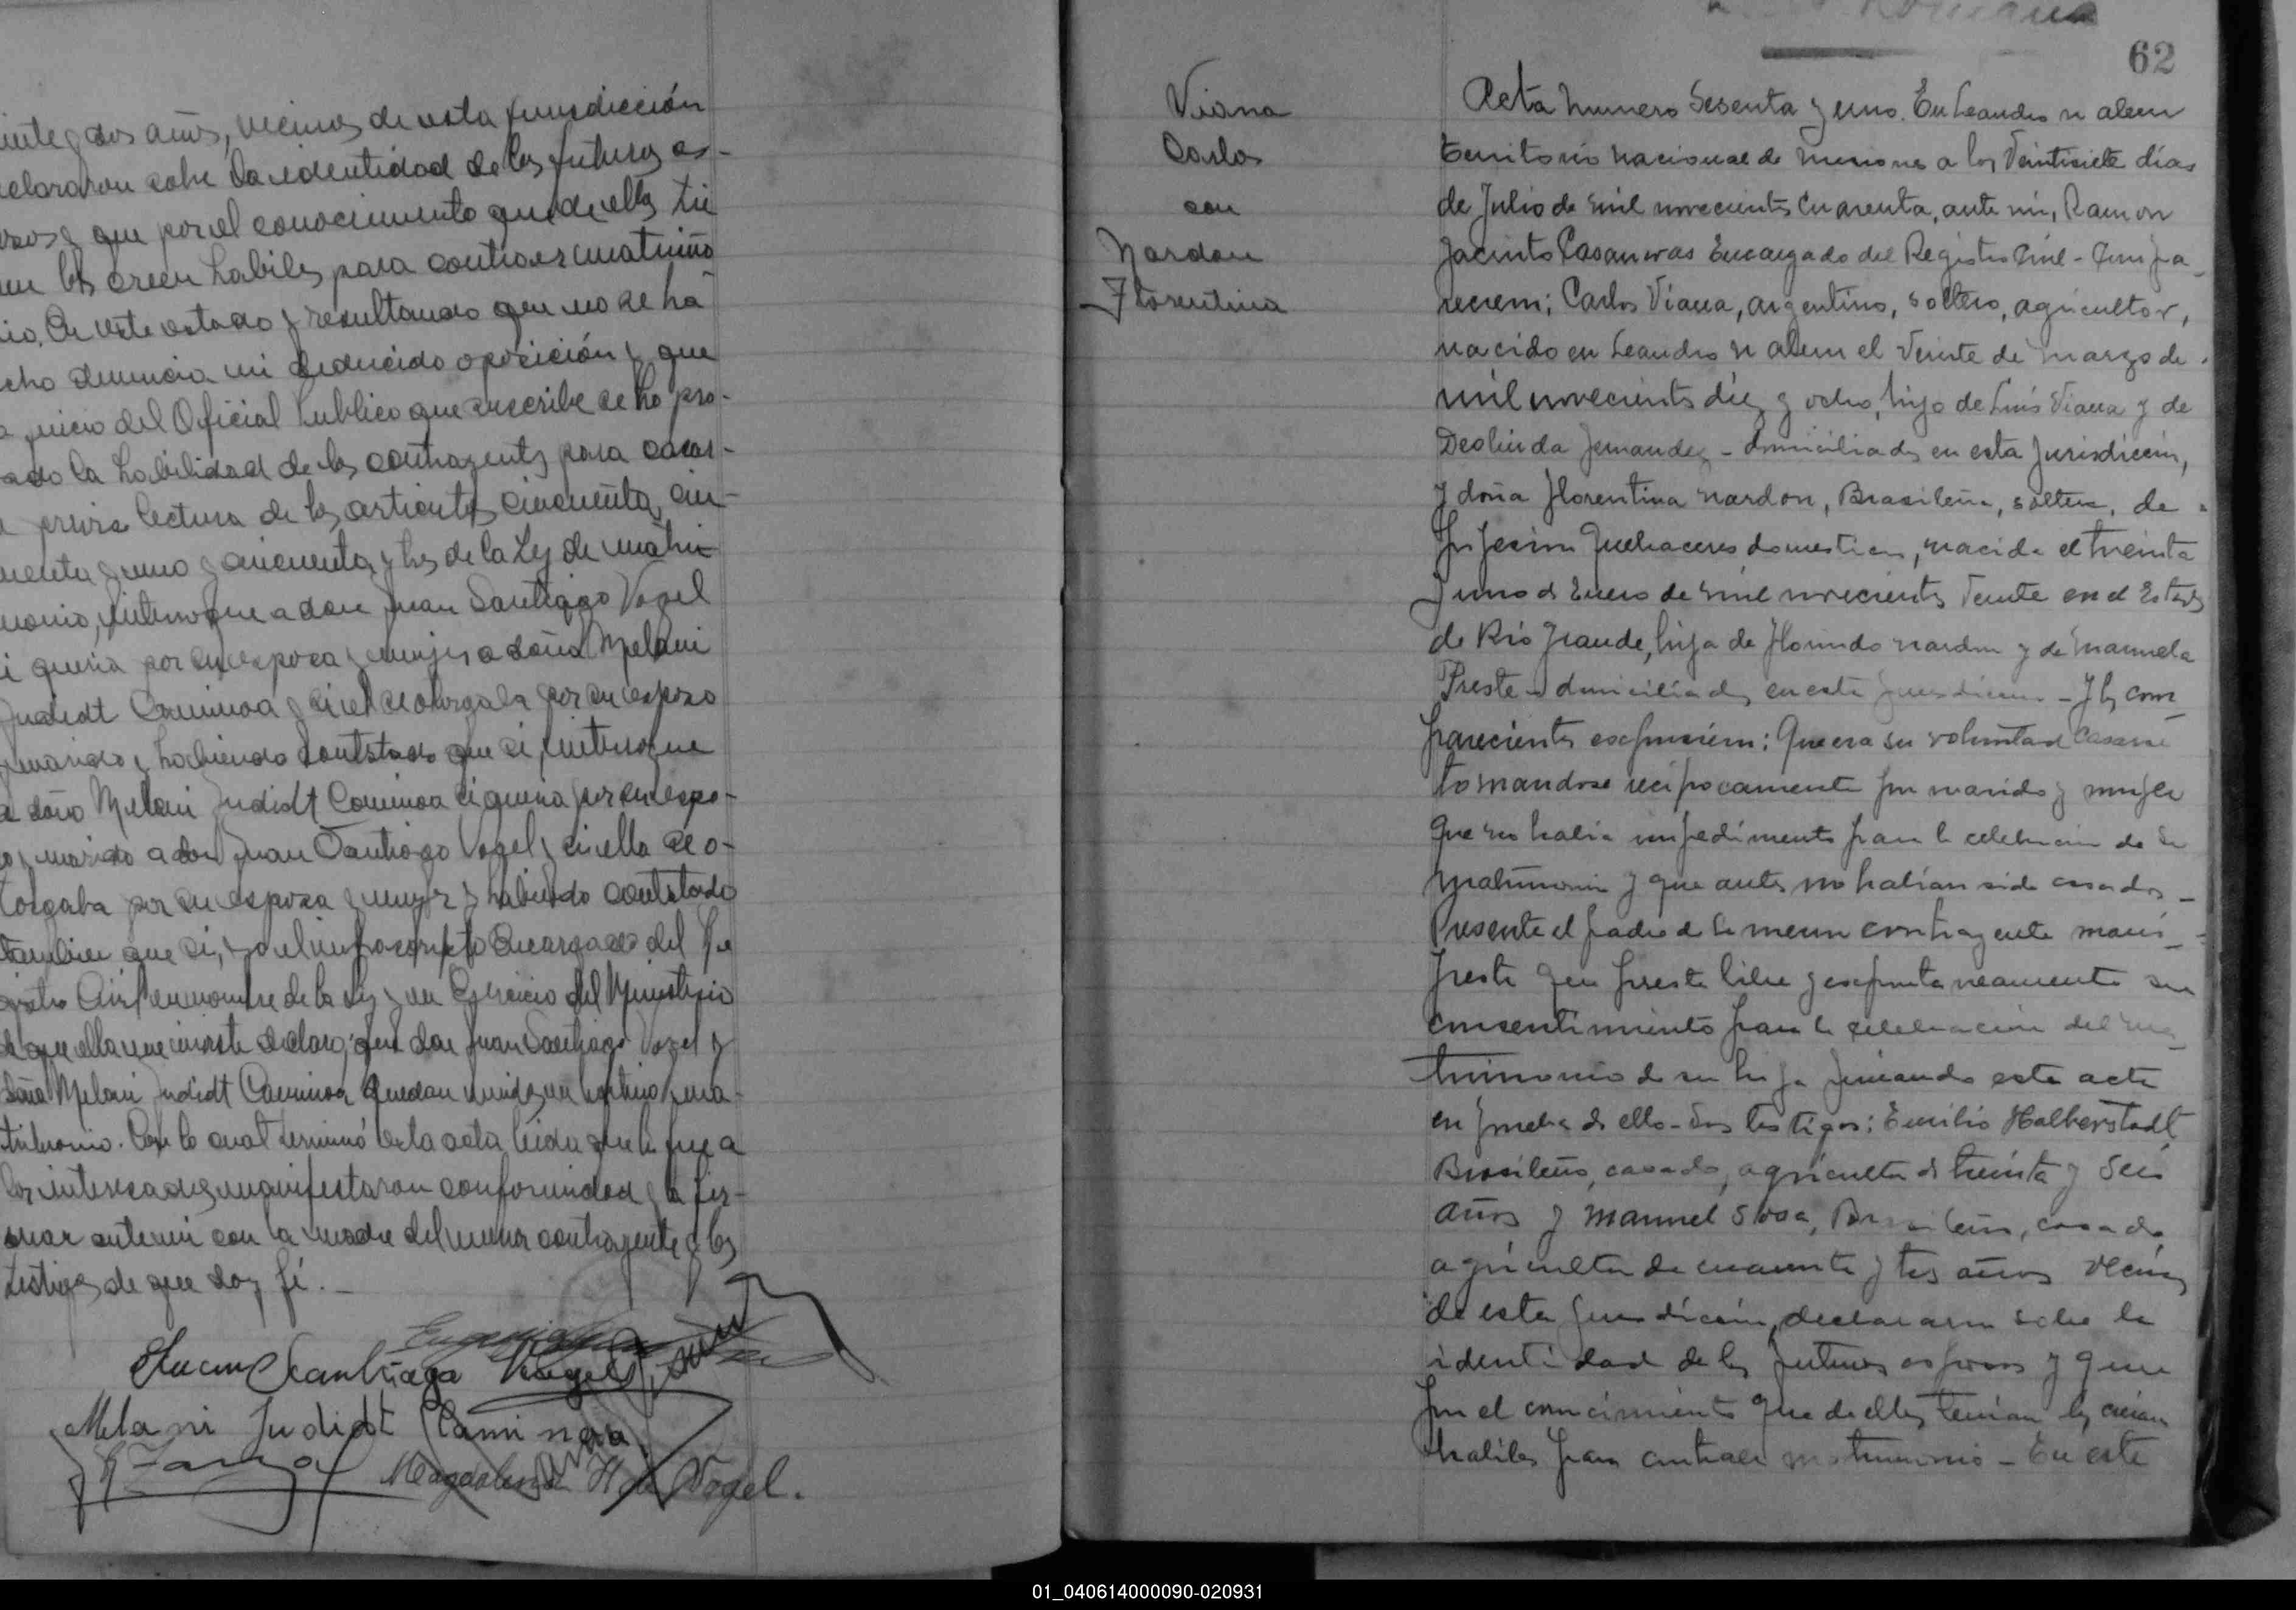 inte y dos años, vecinos de esta jurisdicción
clararon sobre la identidad de los futuros es-
posos y que por el conocimiento que de ellos tie
nen los creen habiles para contraer matrimo
nio. En este estado y resultando que no se ha
cho denuncia ni deducido oposición y que
a juicio del Oficial Publico que suscribe se ha pro-
ado la habilidad de los contrayentes para casar-
e previa lectura de los articulos cincuenta, cin-
cuenta y uno y cincuenta y tres de la Ley de matri
monio, interrogue a don Juan Santiago Vogel
i queria por su esposa y mujer a doña Melani
Judidt Caminoa y si el se otorgaba por su esposo
marido y habiendo contestado que si, interrogue
a doña Melani Judidt Caminoa si queria por su espo-
so y marido a don Juan Santiago Vogel y si ella se o-
torgaba por su esposa y mujer y habiendo contestado
tambien que si, yo el infrascripto Encargado del Re
gistro Civil en nombre de la Ley y en Ejercicio del Ministerio
de que ella me inviste declaro; que don Juan Santiago Vogel y
doña Melani Judidt Caminoa quedan unidos en legitimo ma-
trimonio. Con lo cual terminó esta acta leida que le fue a
los interesados, manifestaron conformidad y la fir-
mar ante mi con la madre del menor contrayente y los
testigos de que doy fé.-
Juan Santiago Vogel
Melani Judidt Caminoa
Magdalena H de Vogel.
62
Viana
Carlos
con
Nardon
Florentina
Acta numero Sesenta y uno. En Leandro n alem
territorio nacional de misiones a los Veintisiete días
de Julio de mil novecientos Cuarenta, ante mi, Ramon
Jacinto Casanovas Encargado del Registro Civil - Compa-
recen; Carlos Viana, argentino, soltero, agricultor,
nacido en Leandro n alem el Veinte de marzo de
mil novecientos diez y ocho, hijo de Luis Viana y de
Deolinda Fernandez - domiciliados en esta Jurisdiccion,
y doña Florentina Nardon, Brasileña, soltera, de
profesion Quehaceres domesticos, nacida el treinta
y uno de Enero de mil novecientos Veinte en el Estado
de Rio Grande, hija de Florindo Nardon y de Manuela
Preste - domiciliados en esta Jurisdiccion - Y los com
parecientes expusieron: Que era su voluntad Casarse
tomandose reciprocamente por marido y mujer
Que no habia impedimento para la celebracion de su
matrimonio y que antes no habian sido casados -
Presente el padre de la menor contrayente mani-
festo que presta libre y espontaneamente su
consentimiento para la celebracion del ma
trimonio de su hija firmando esta acta
en prueba de ello - Los testigos: Emilio Halberstadt
Brasileño, casado, agricultor de treinta y Seis
años y Manuel Sosa, Brasileño, casado
agricultor de cuarenta y tres años vecinos
de esta jurisdiccion, declararon sobre la
identidad de los futuros esposos y que
por el conocimiento que de ellos tenian los creian
habiles para contraer matrimonio - En este
01_040614000090-020931